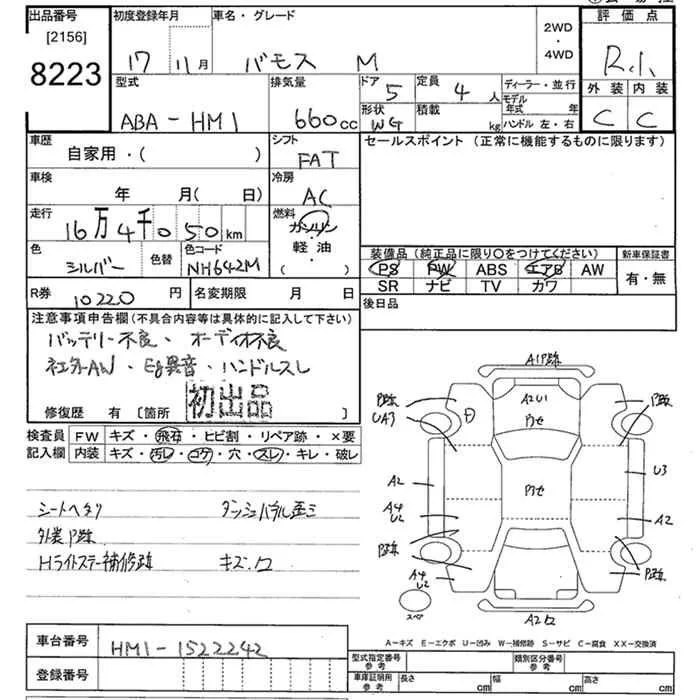 出品番号
[2156]
8223
初度登録年月
17 11月
車名・グレード
バモス M
2WD
・
4WD
評価点
R.1.
外装 内装
C C
型式
ABA-HM1
排気量
660cc
ドア 5
定員 4 人
形状 WG
積載 kg
ディーラー・並行
モデル年式 年
ハンドル 左・右
車歴
自家用・( )
シフト
FAT
セールスポイント (正常に機能するものに限ります)
車検
年 月( 日)
冷房
AC
走行
16万4千050km
燃料
ガソリン
軽・油
( )
色
シルバー
色替
色コード
NH642M
装備品 (純正品に限り○をつけてください)
PS PW ABS エアB AW
SR ナビ TV カワ
新車保証書
有・無
R券 10220 円
名変期限 月 日
後日品
注意事項申告欄(不具合内容等は具体的に記入して下さい)
バッテリー不良・オーディオ不良
社外AW・Eg異音・ハンドルスレ
初出品
修復歴 有 [箇所 ]
検査員記入欄
FW キズ・飛石・ヒビ割・リペア跡・×要
内装 キズ・汚レ・コゲ・穴・スレ・キレ・破レ
シートヘタリ
ダッシュパネル歪ミ
外装P跡
Hライトステー補修跡
キズ・凹
A1P跡
P跡
UA3
A2U1
P跡
U3
A2
A4
U2
A2
P跡
P跡
A4
U2
スペア
A2凹
A-キズ E-エクボ U-凹み W-補修跡 S-サビ C-腐食 XX-交換済
車台番号
HM1-1522242
登録番号
型式指定番号
参考
類別区分番号
参考
車庫証明用
参考
長さ cm
幅 cm
高さ cm